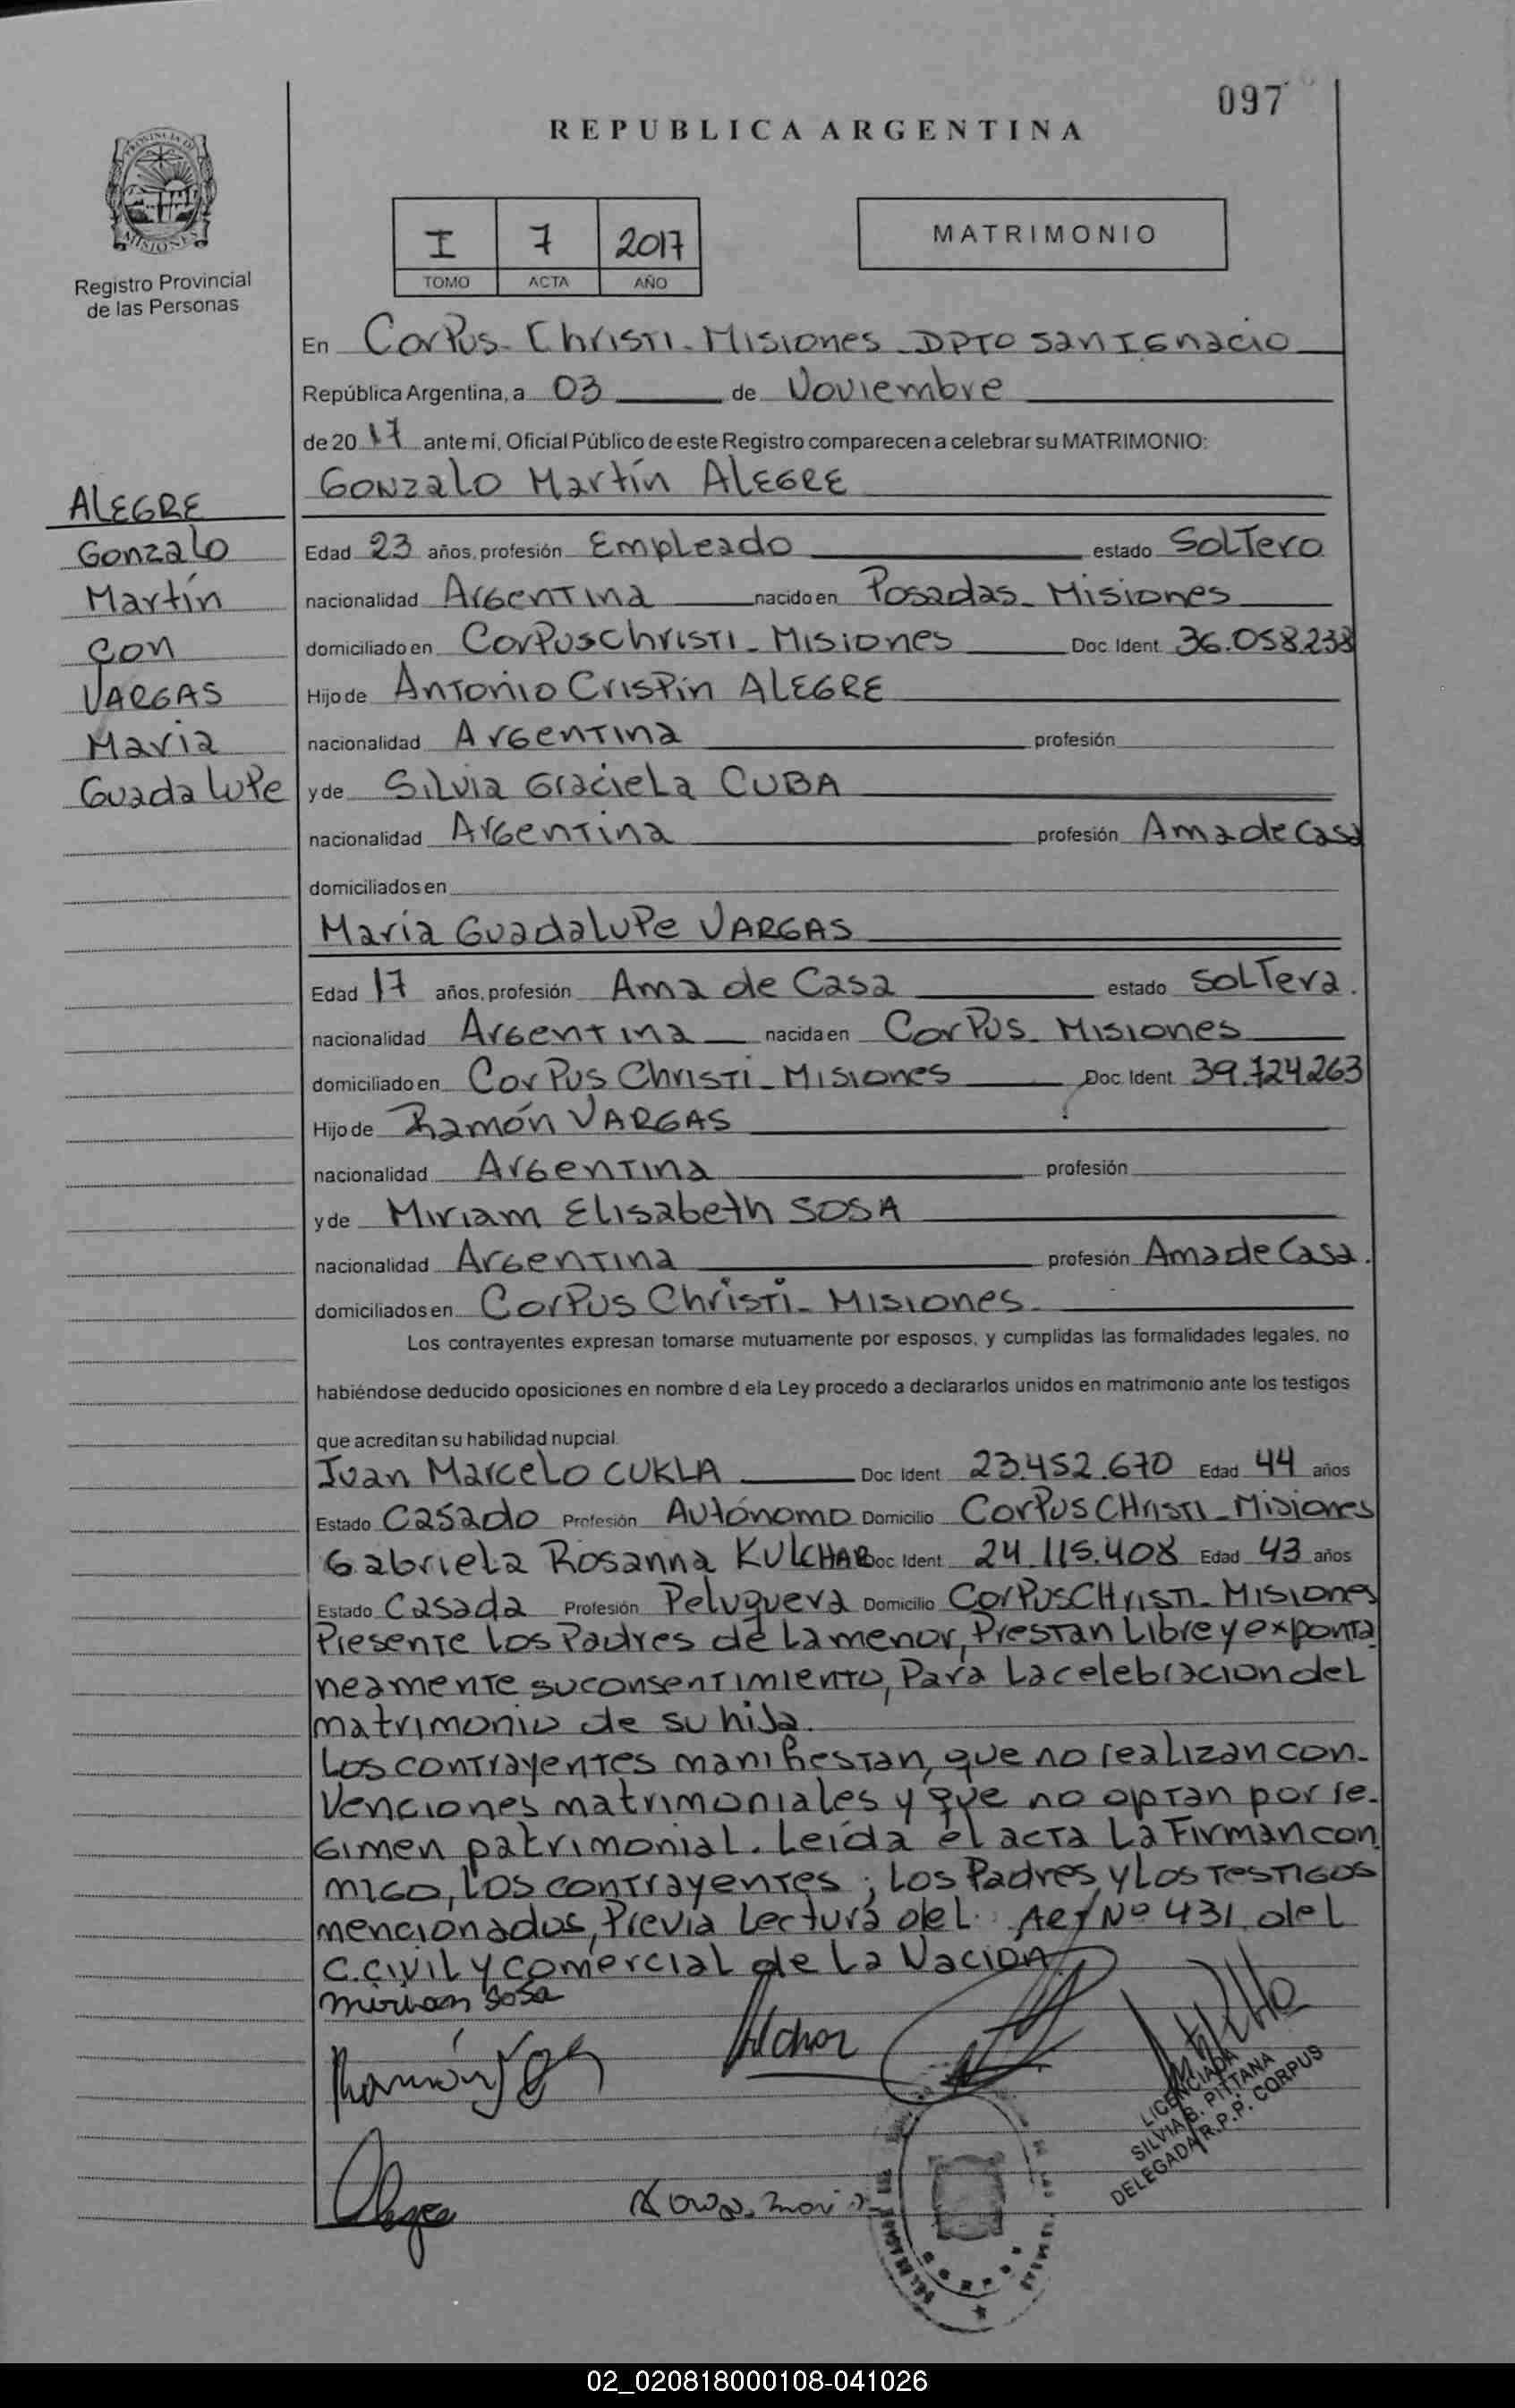 097
REPUBLICA ARGENTINA
PROVINCIA DE
MISIONES
Registro Provincial
de las Personas
I 7 2017
TOMO ACTA AÑO
MATRIMONIO
En Corpus Christi - Misiones DPTO San Ignacio
República Argentina, a 03 de Noviembre
de 20 17 ante mi, Oficial Público de este Registro comparecen a celebrar su MATRIMONIO:
Gonzalo Martín ALEGRE
ALEGRE
Gonzalo
Martín
con
VARGAS
Maria
Guadalupe
Edad 23 años, profesión Empleado estado Soltero
nacionalidad Argentina nacido en Posadas - Misiones
domiciliado en Corpus Christi - Misiones Doc. Ident. 36.058.238
Hijo de Antonio Crispín ALEGRE
nacionalidad Argentina profesión
y de Silvia Graciela CUBA
nacionalidad Argentina profesión Ama de Casa
domiciliados en
María Guadalupe VARGAS
Edad 17 años, profesión Ama de Casa estado Soltera.
nacionalidad Argentina nacida en Corpus - Misiones
domiciliado en Corpus Christi - Misiones Doc. Ident. 39.724.263
Hijo de Ramón VARGAS
nacionalidad Argentina profesión
y de Miriam Elisabeth SOSA
nacionalidad Argentina profesión Ama de Casa.
domiciliados en Corpus Christi - Misiones
Los contrayentes expresan tomarse mutuamente por esposos, y cumplidas las formalidades legales, no
habiéndose deducido oposiciones en nombre d ela Ley procedo a declararlos unidos en matrimonio ante los testigos
que acreditan su habilidad nupcial.
Juan Marcelo CUKLA Doc. Ident. 23.452.670 Edad 44 años
Estado Casado Profesión Autónomo Domicilio Corpus CHristi - Misiones
Gabriela Rosanna KULCHAR Doc. Ident. 24.115.408 Edad 43 años
Estado Casada Profesión Peluquera Domicilio Corpus CHristi - Misiones
Presente Los Padres de La menor, Prestan Libre y exponta
neamente su consentimiento, Para La celebracion del
matrimonio de su hija.
Los contrayentes manifiestan, que no realizan con-
venciones matrimoniales y que no optan por re-
gimen patrimonial. Leída el acta La Firman con
migo, los contrayentes; Los Padres y Los testigos
mencionados, Previa Lectura del Art Nº 431 del
C. Civil y Comercial de La Nacion
Miriam Sosa
LICENCIADA
SILVIA B. PITTANA
DELEGADA R.P.P. CORPUS
02_020818000108-041026